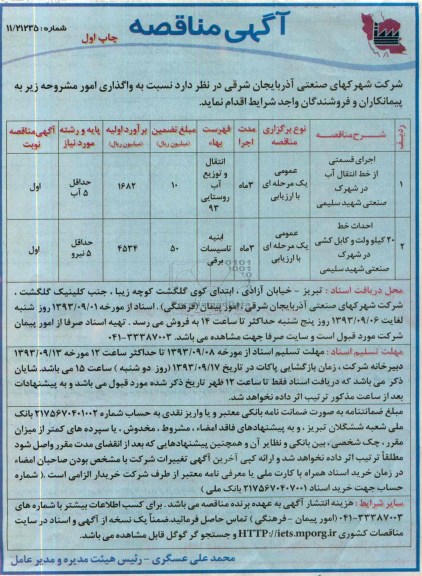 آگهی مناقصه
چاپ اول
شماره : ۱۱/۲۱۲۳۵
شرکت شهرکهای صنعتی آذربایجان شرقی در نظر دارد نسبت به واگذاری امور مشروحه زیر به
پیمانکاران و فروشندگان واجد شرایط اقدام نماید.
ردیف شرح مناقصه نوع برگزاری مناقصه مدت اجرا فهرست بهاء مبلغ تضمین (میلیون ریال) برآورد اولیه (میلیون ریال) پایه و رشته مورد نیاز آگهی مناقصه نوبت
۱ اجرای قسمتی از خط انتقال آب در شهرک صنعتی شهید سلیمی عمومی یک مرحله ای با ارزیابی ۳ماه انتقال و توزیع آب روستایی ۹۳ ۱۰ ۱۶۸۲ حداقل ۵ آب اول
۲ احداث خط ۲۰ کیلو ولت و کابل کشی در شهرک صنعتی شهید سلیمی عمومی یک مرحله ای با ارزیابی ۳ماه ابنیه تاسیسات برقی ۵۰ ۴۵۳۴ حداقل ۵ نیرو اول
محل دریافت اسناد : تبریز - خیابان آزادی ، ابتدای کوی گلگشت کوچه زیبا ، جنب کلینیک گلگشت ،
شرکت شهرکهای صنعتی آذربایجان شرقی ، امور پیمان (فرهنگی) . اسناد از مورخه ۱۳۹۳/۰۹/۰۱ روز شنبه
لغایت ۱۳۹۳/۰۹/۰۶ روز پنج شنبه حداکثر تا ساعت ۱۴ به فروش می رسد . تهیه اسناد صرفا از امور پیمان
شرکت مورد قبول است و سایت صرفا جهت مشاهده می باشد. ۳۳۳۸۷۰۰۳-۰۴۱
مهلت تسلیم اسناد : مهلت تسلیم اسناد از مورخه ۱۳۹۳/۰۹/۰۸ تا حداکثر ساعت ۱۲ مورخه ۱۳۹۳/۰۹/۱۳
دبیرخانه شرکت ، زمان بازگشایی پاکات در تاریخ ۱۳۹۳/۰۹/۱۷ (روز دو شنبه ) ساعت ۱۵ می باشد. شایان
ذکر می باشد که دریافت اسناد فقط تا ساعت ۱۲ ظهر تاریخ ذکر شده مورد قبول می باشد و به پیشنهادات
بعد از ساعت مذکور ترتیب اثر داده نخواهد شد.
مبلغ ضمانتنامه به صورت ضمانت نامه بانکی معتبر و یا واریز نقدی به حساب شماره ۲۱۷۵۶۷۰۴۰۱۰۰۲ بانک
ملی شعبه ششگلان تبریز ، و به پیشنهادهای فاقد امضاء ، مشروط ، مخدوش ، یا سپرده های کمتر از میزان
مقرر ، چک شخصی ، بین بانکی و نظایر آن و همچنین پیشنهادهایی که بعد از انقضای مدت مقرر واصل شود
مطلقاً ترتیب اثر داده نخواهد شد و ارائه کپی آخرین آگهی تغییرات شرکت با مشخص بودن صاحبان امضاء
در زمان خرید اسناد همراه با کارت ملی یا معرفی نامه معتبر از طرف شرکت خریدار الزامی است . (شماره
حساب جهت خرید اسناد ۲۱۷۵۶۷۰۴۰۷۰۰۱ بانک ملی )
سایر شرایط : هزینه انتشار آگهی به عهده برنده مناقصه می باشد . برای کسب اطلاعات بیشتر با شماره های
۳۳۳۸۷۰۰۳-۰۴۱ (امور پیمان - فرهنگی ) تماس حاصل فرمائید.ضمناً یک نسخه از آگهی و اسناد در سایت
مناقصات کشوری HTTP://iets.mporg.ir و جستجو گر گوگل قابل مشاهده می باشد.
محمد علی عسگری - رئیس هیئت مدیره و مدیر عامل